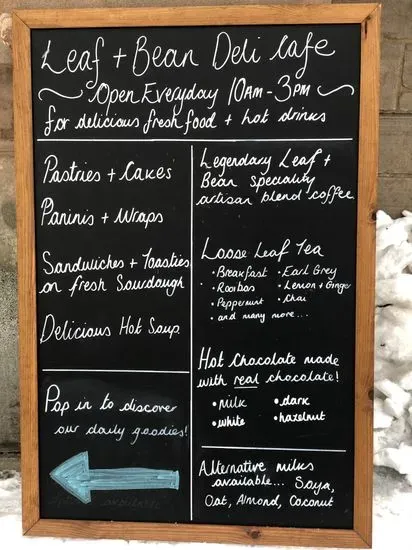 Leaf + Bean Deli Cafe
Open Everyday 10am - 3pm
for delicious fresh food + hot drinks
Pastries + Cakes
Paninis + Wraps
Sandwiches + Toasties
on fresh Sourdough
Delicious Hot Soup
Pop in to discover
our daily goodies!
Legendary Leaf +
Bean speciality
artisan blend coffee
Loose Leaf Tea
• Breakfast • Earl Grey
• Rooibos • Lemon + Ginger
• Peppermint • Chai
• and many more...
Hot Chocolate made
with real chocolate!
• milk • dark
• white • hazelnut
Alternative milks
available... Soya,
Oat, Almond, Coconut